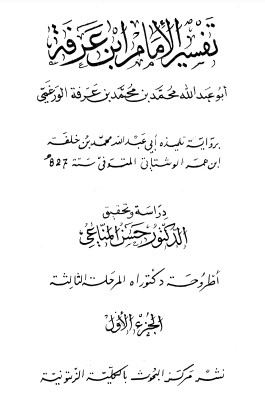 تفسير الإمام ابن عرفة
أبو عبد الله محمد بن محمد بن عرفة الورغمي
برواية تلميذه أبي عبد الله محمد بن خلفة
ابن عمر الوشتاني المتوفى سنة 827هـ
دراسة وتحقيق
الدكتور حسن المناعي
أطروحة دكتوراه المرحلة الثالثة
الجزء الأول
نشر مركز البحوث بالكلية الزيتونية